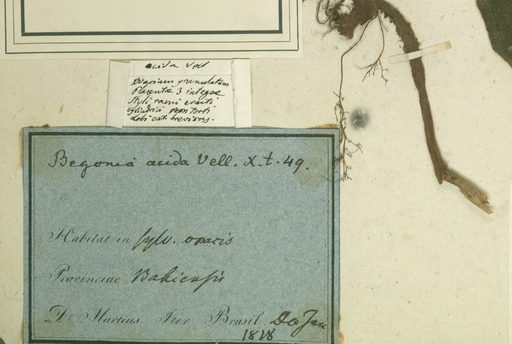 acida Vell
Ovarium granulatum
Placentae 3 integrae
Styli rami erecti
cylindrici non torti
lobi cat. breviores.
Begonia acida Vell. X. t. 49.
Habitat in sylv. opacis
Provinciae Bahiensis
Dr. Martius Iter Brasil. Dec Jan
1818